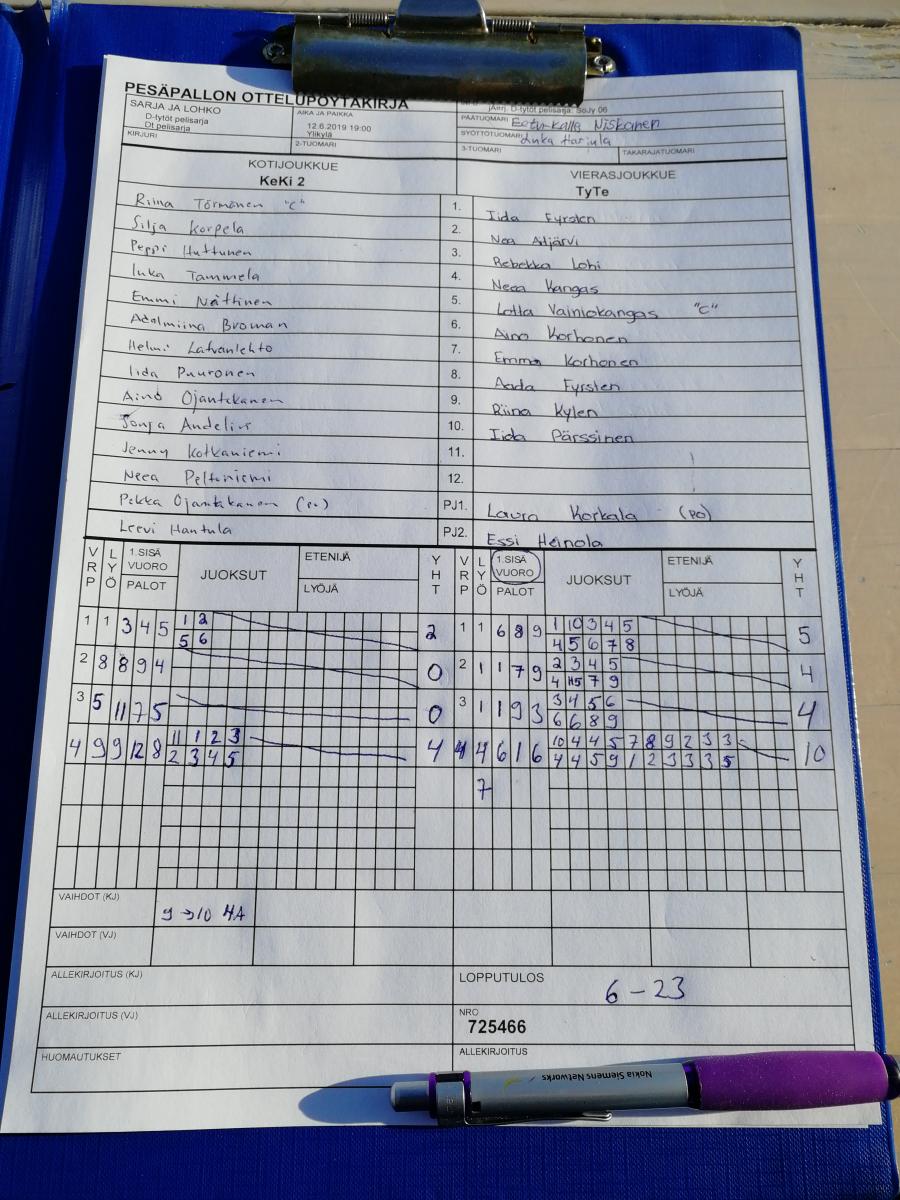 PESÄPALLON OTTELUPÖYTÄKIRJA
SARJA JA LOHKO
D-tytöt pelisarja
Dt pelisarja
KIRJURI
AIKA JA PAIKKA
12.6.2019 19:00
Ylikylä
2-TUOMARI
D-tytöt pelisarja: SoJy 06
PÄÄTUOMARI Niskanen
SYÖTTÖTUOMARI
3-TUOMARI TAKARAJATUOMARI
KOTIJOUKKUE VIERASJOUKKUE
KeKi 2 TyTe
Riina Törmänen "C" 1. Iida Fyrsten
Silja Korpela 2. Nea
Peppi Huttunen 3. Rebekka Lohi
Inka Tammela 4. Neea Kangas
Emmi Nättinen 5. Lotta Vainiokangas "C"
Adalmiina Broman 6. Aino Korhonen
Helmi Latvanlehto 7. Emma Korhonen
Iida Puuronen 8. Aada Fyrsten
Aino Ojantakanen 9. Riina Kylen
Sonja Andelin 10. Iida Pärssinen
Jenny Kotkaniemi 11.
Neea Peltoniemi 12.
Pekka Ojantakanen (po) PJ1. Laura Korkala (PO)
Leevi Hantula PJ2. Essi Heinola
VRP LYÖ 1.SISÄ VUORO PALOT JUOKSUT ETENIJÄ LYÖJÄ YHT VRP LYÖ 1.SISÄ VUORO PALOT JUOKSUT ETENIJÄ LYÖJÄ YHT
1 1 3 4 5 1 2 2 1 1 6 8 9 1 10 3 4 5 5
5 6 4 5 6 7 8
2 8 8 9 4 0 2 1 1 7 9 2 3 4 5 4
4 7 9
3 5 11 7 5 0 3 1 1 9 3 3 4 5 6 4
6 6 8 9
4 9 9 12 8 11 1 2 3 4 4 4 6 1 6 10 4 4 5 7 8 9 2 3 3 10
2 3 4 5 4 4 5 9 1 2 3 3 3 5
7
VAIHDOT (KJ) 9→10 4A
VAIHDOT (VJ)
ALLEKIRJOITUS (KJ) LOPPUTULOS 6 – 23
ALLEKIRJOITUS (VJ) NRO
725466
HUOMAUTUKSET ALLEKIRJOITUS
Nokia Siemens Networks